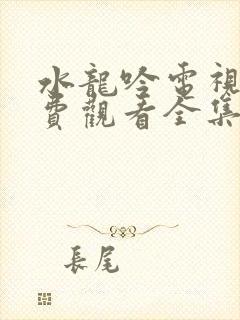 水龍吟電視
費觀看全集
長尾